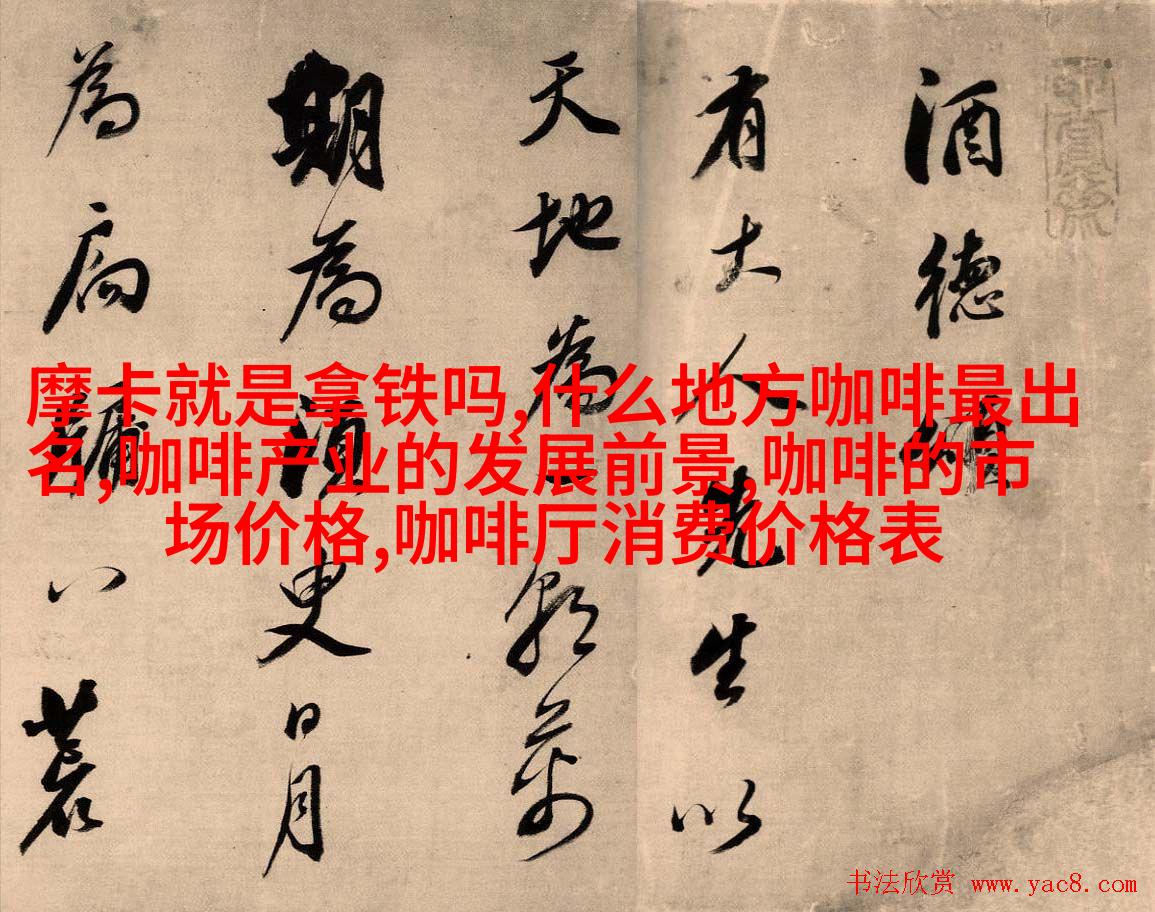 酒德頌
有大人先生以
天地為一朝萬
期為須臾日月
為扃牖八荒
摩卡就是拿铁吗,什么地方咖啡最出
名,咖啡产业的发展前景,咖啡的市
场价格,咖啡厅消费价格表
书法欣赏 www.yac8.com